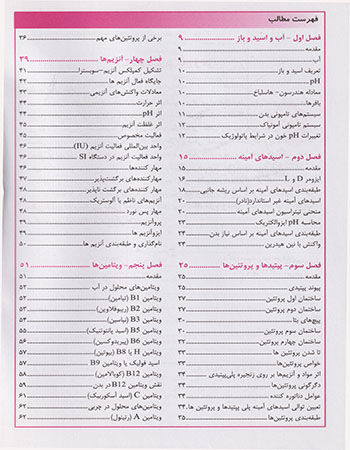 فهرست مطالب
فصل اول - آب و اسید و باز ۹
مقدمه ۹
آب ۹
تعریف اسید و باز ۱۰
pH ۱۰
معادله هندرسون- هاسلباخ ۱۰
بافرها ۱۰
سیستم‌های تامپونی بدن ۱۱
سیستم تامپونی آمونیاک ۱۲
تغییرات pH خون در شرایط پاتولوژیک ۱۲
فصل دوم - اسیدهای آمینه ۱۵
مقدمه ۱۵
ایزومر D و L ۱۶
طبقه‌بندی اسیدهای آمینه بر اساس ریشه جانبی ۱۸
اسیدهای آمینه غیر استاندارد(نادر) ۲۰
منحنی تیتراسیون اسیدهای آمینه ۲۰
محاسبه pH ایزوالکتریک ۲۳
طبقه‌بندی اسیدهای آمینه بر اساس نیاز بدن ۲۴
واکنش با نین هیدرین ۲۴
فصل سوم- پپتیدها و پروتئین‌ها ۲۵
مقدمه ۲۵
پیوند پپتیدی ۲۵
ساختمان اول پروتئین ۲۷
ساختمان دوم پروتئین ۲۷
پیچ‌های بتا ۳۰
ساختمان سوم پروتئین ۳۰
ساختمان چهارم پروتئین ۳۲
تا شدن پروتئین ها ۳۳
خواص پروتئین‌ها ۳۳
اثر مواد و آنزیم‌ها بر روی زنجیره پلی‌پپتیدی ۳۴
دگرگونی پروتئین‌ها ۳۴
عوامل دناتوره کننده ۳۴
تعیین توالی اسیدهای آمینه پلی پپتیدها و پروتئین ها ۳۴
طبقه‌بندی پروتئین‌ها ۳۵
برخی از پروتئین‌های مهم ۳۶
فصل چهار- آنزیم‌ها ۳۹
تشکیل کمپلکس آنزیم-سوبسترا ۴۱
جایگاه فعال آنزیم ها ۴۲
معادلات واکنش‌های آنزیمی ۴۳
اثر حرارت ۴۴
اثر pH ۴۴
اثر غلظت آنزیم ۴۵
فعالیت مخصوص ۴۵
واحد بین‌المللی فعالیت آنزیم (IU) ۴۶
واحد فعالیت آنزیم در دستگاه SI ۴۶
مهار کننده‌ها ۴۶
مهارکننده‌های برگشت‌پذیر ۴۷
مهار کننده‌های برگشت ناپذیر ۴۸
آنزیم‌های ناظم یا آلوستریک ۴۸
مهار پس نورد ۴۸
پروآنزیم ۴۹
ایزوآنزیم ها ۴۹
نام‌گذاری و طبقه‌بندی آنزیم ها ۵۰
فصل پنجم- ویتامین‌ها ۵۱
مقدمه ۵۱
ویتامین‌های محلول در آب ۵۲
ویتامین B1 (تیامین) ۵۲
ویتامین B2 (ریبوفلاوین) ۵۳
ویتامین B3 (نیاسین) ۵۴
ویتامین B5 (اسید پانتوتنیک) ۵۵
ویتامین B6 (پیریدوکسین) ۵۶
ویتامین H یا B8 (بیوتین) ۵۷
اسید فولیک یا ویتامین B9 ۵۷
ویتامین B12 (کوبالامین) ۵۸
نقش ویتامین B12 در بدن ۵۹
ویتامین C (اسید آسکوربیک) ۶۱
ویتامین‌های محلول در چربی ۶۲
ویتامین A (رتینول) ۶۲